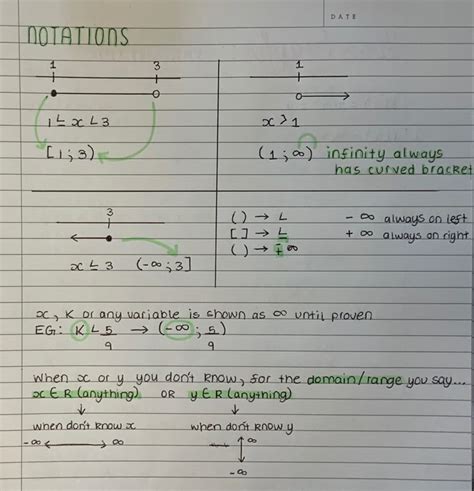 DATE
NOTATIONS
1 3
1 ≤ x < 3
[1 ; 3)
1
x > 1
(1 ; ∞) infinity always
has curved bracket
3
x ≤ 3 (-∞ ; 3]
( ) → <
[ ] → ≤
( ) → ± ∞
- ∞ always on left
+ ∞ always on right
x, K or any variable is shown as ∞ until proven
EG: K < 5/9 → (-∞ ; 5/9)
when x or y you don't know, for the domain/range you say...
x ∈ R (anything) OR y ∈ R (anything)
↓ ↓
when don't know x when don't know y
-∞ ↔ ∞
∞
-∞